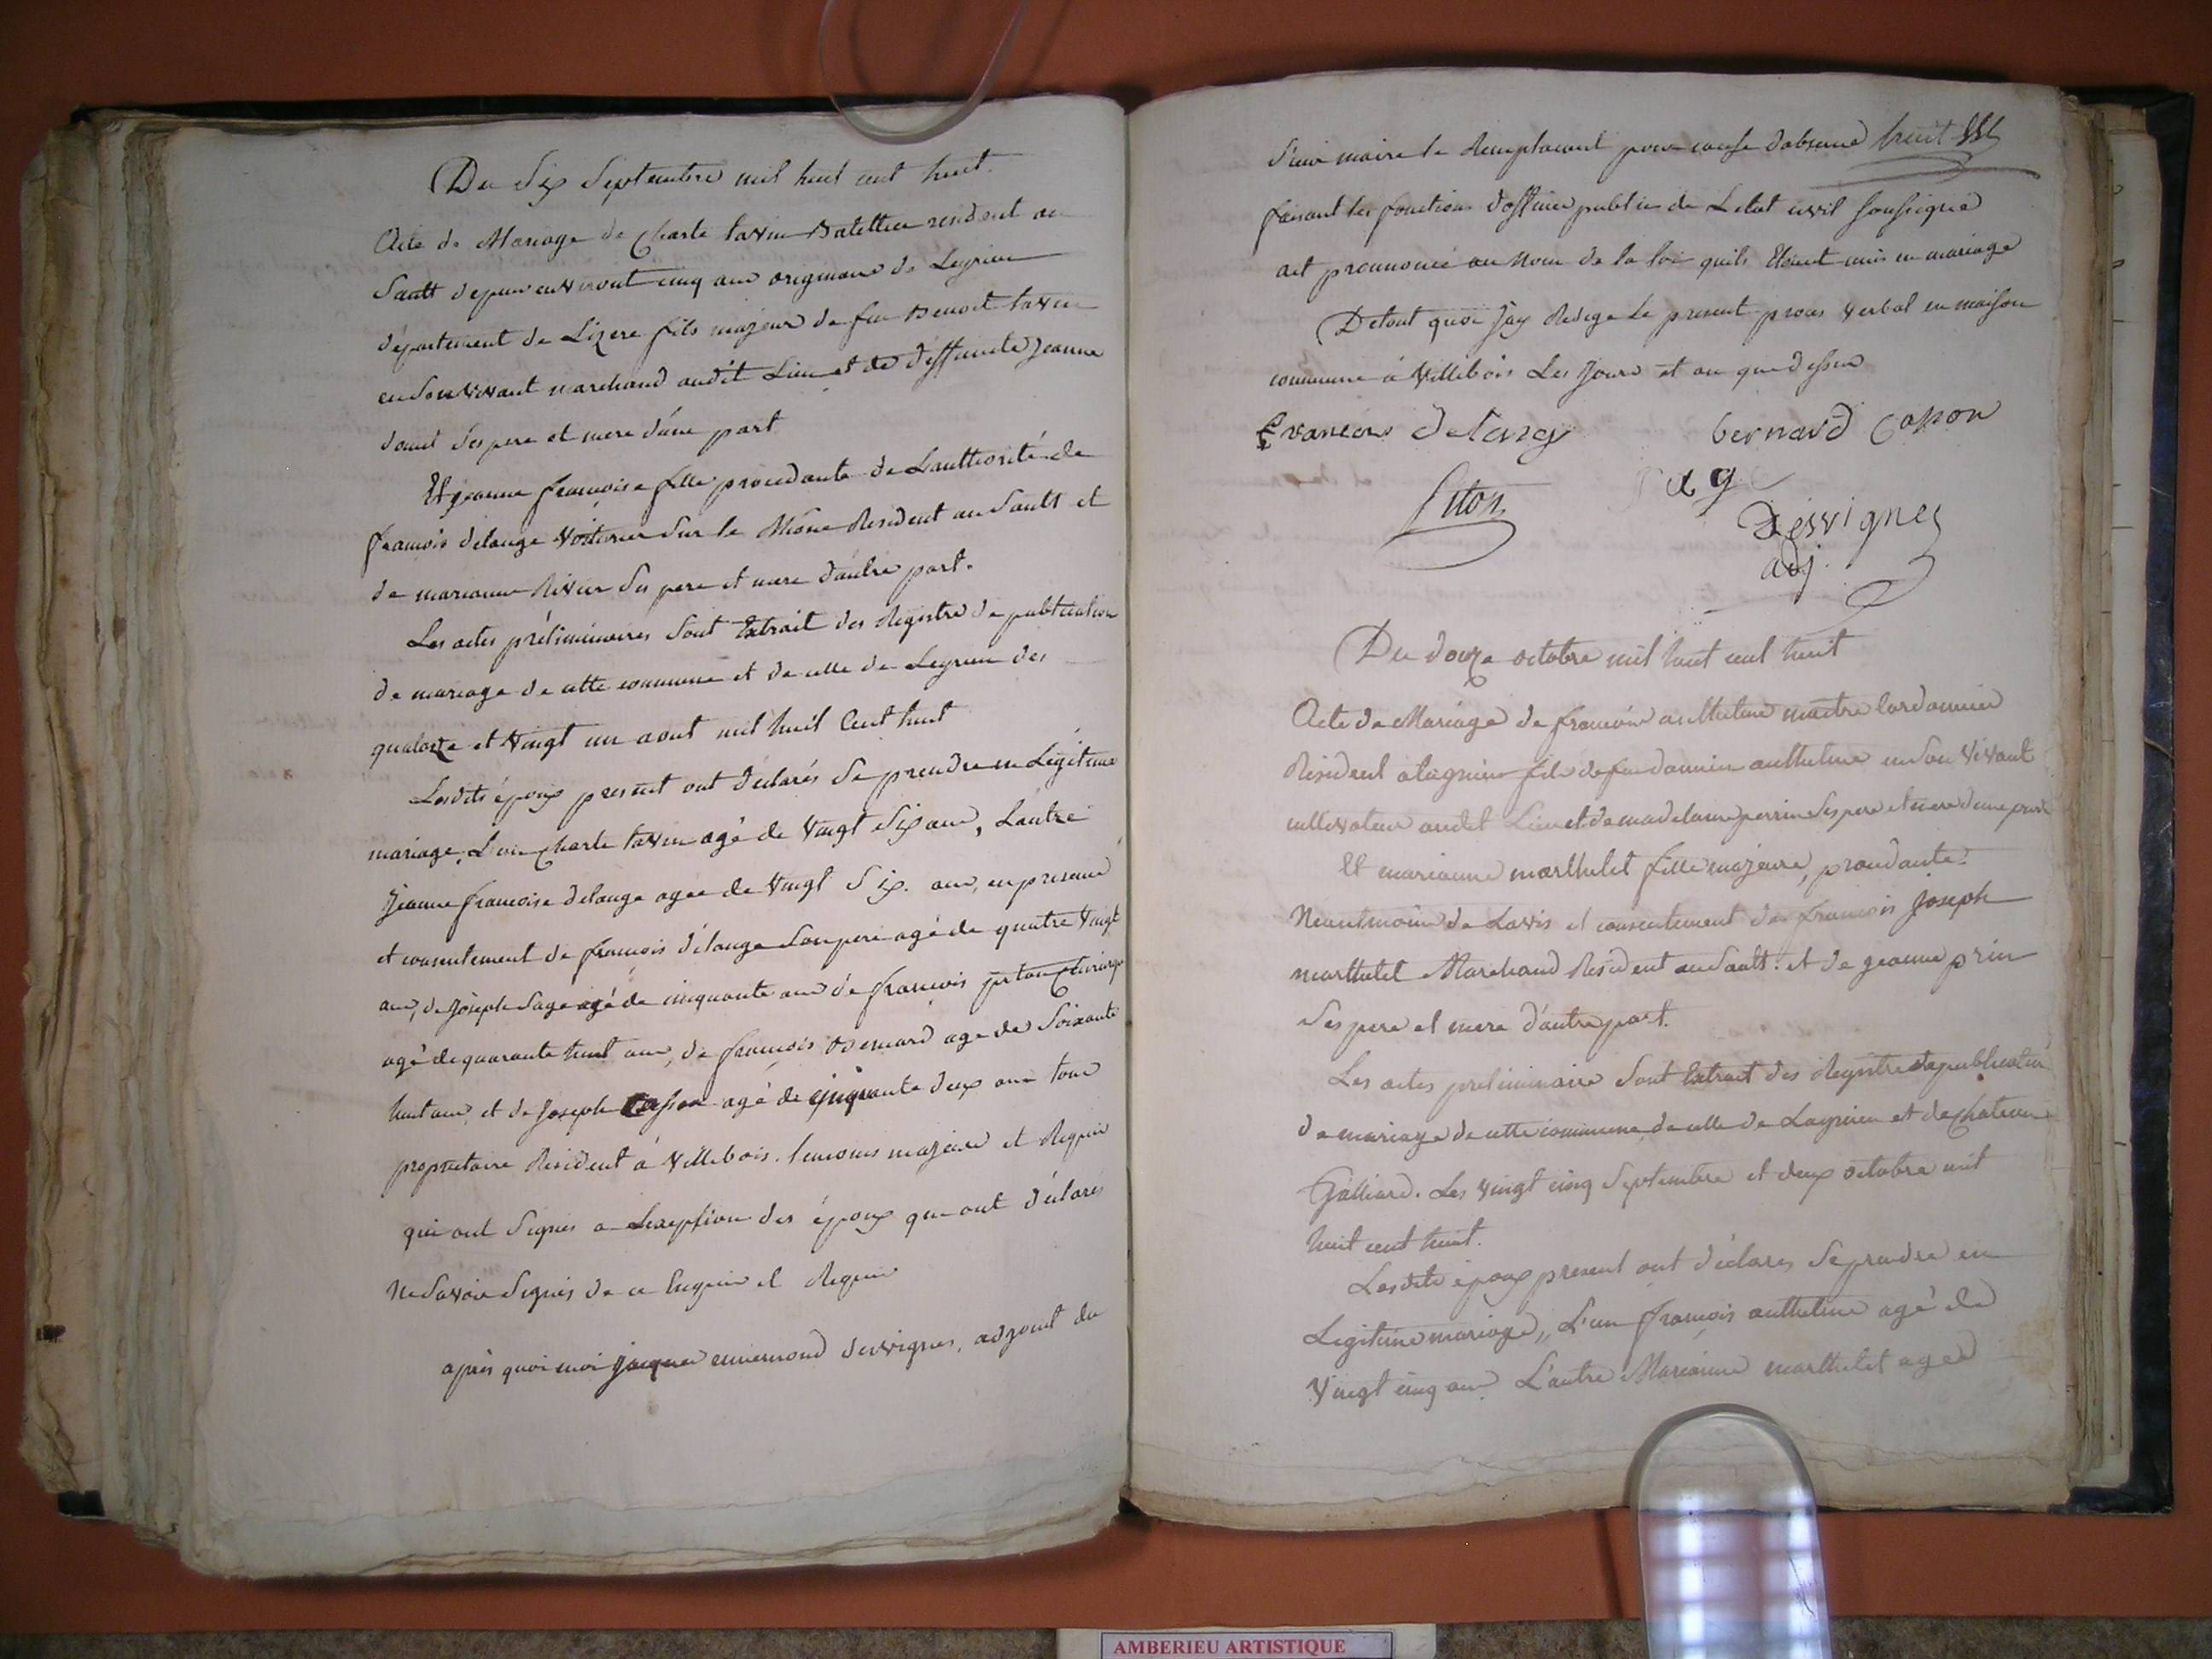 Du Six Septembre mil huit cent huit.
Acte de Mariage de Charle Tavin Battellier resident au
Sault depuis environt cinq ans originaire de Leyrieu
département de Lizere fils majeur de feu Benoit Tavin
en Son vivant marchand audit Lieu et de deffuncte Jeanne
Ses pere et mere d'une part
Et jeanne francoise fille procedante de L'authorité de
francois delange Voiturier Sur le Rhône Resident au Sault et
de marianne Rivier Ses pere et mere d'autre part.
Les actes préliminaires Sont Extrait des Registre de publication
de mariage de cette commune et de celle de Leyrieu des
quatorze et Vingt un aout mil huit Cent huit
Lesdits époux present ont déclarés Se prendre en Légitime
mariage, L'un Charle Tavin agé de Vingt Six ans, Lautre
Jeanne francoise delange agée de Vingt Six ans, en presence
et consentement de francois délange Son pere agé de quatre Vingt
ans, de Joseph Sage agé de cinquante ans de francois Chirurgien
agé de quarante huit ans, de francois Bernard age de Soixante
huit ans, et de Joseph Casson agé de cinquante deux ans tous
propriétaire Resident à Villebois. temoins majeurs et Requis
qui ont Signés a Lexeption des époux qui ont déclarés
Ne Savoir Signés de ce Enquis et Requis
après quoi moi jacques ennemond desvignes, adjoint du
Sieur maire le Remplacant pour cause dabsence huit
faisant les fonctions d'officier public de Letat civil Soussigné
ait prononcé au Nom de la loi quils Etoient unis en mariage
De tout quoi Jay Redigé Le present proces verbal en maison
commune à Villebois Les Jours et an que dessus
francois delang bernard Casson
Siton Sage
Desvignes
adj.
Du douze octobre mil huit cent huit
Acte de Mariage de francois anthelme maitre Cordonnier
Resident a Lagnieu fils de feu anthelme en Son Vivant
cultivateur audit Lieu et de madelaine perrin Ses pere et mere d'une part
Et marianne marthelet fille majeure, procedante
Neantmoins de Lavis et consentement de francois Joseph
marthelet Marchand Resident au Sault. et de jeanne prin
Ses pere et mere d'autre part.
Les actes preliminaire Sont Extrait des Registre de publication
de mariage de cette commune, de celle de Lagnieu et de chateau
Galliard. Les Vingt cinq Septembre et deux octobre mil
huit cent huit.
Lesdits époux present ont déclarés Se prendre en
Legitime mariage, L'un francois anthelme agé de
Vingt cinq ans L'autre Marianne marthelet agee
AMBERIEU ARTISTIQUE